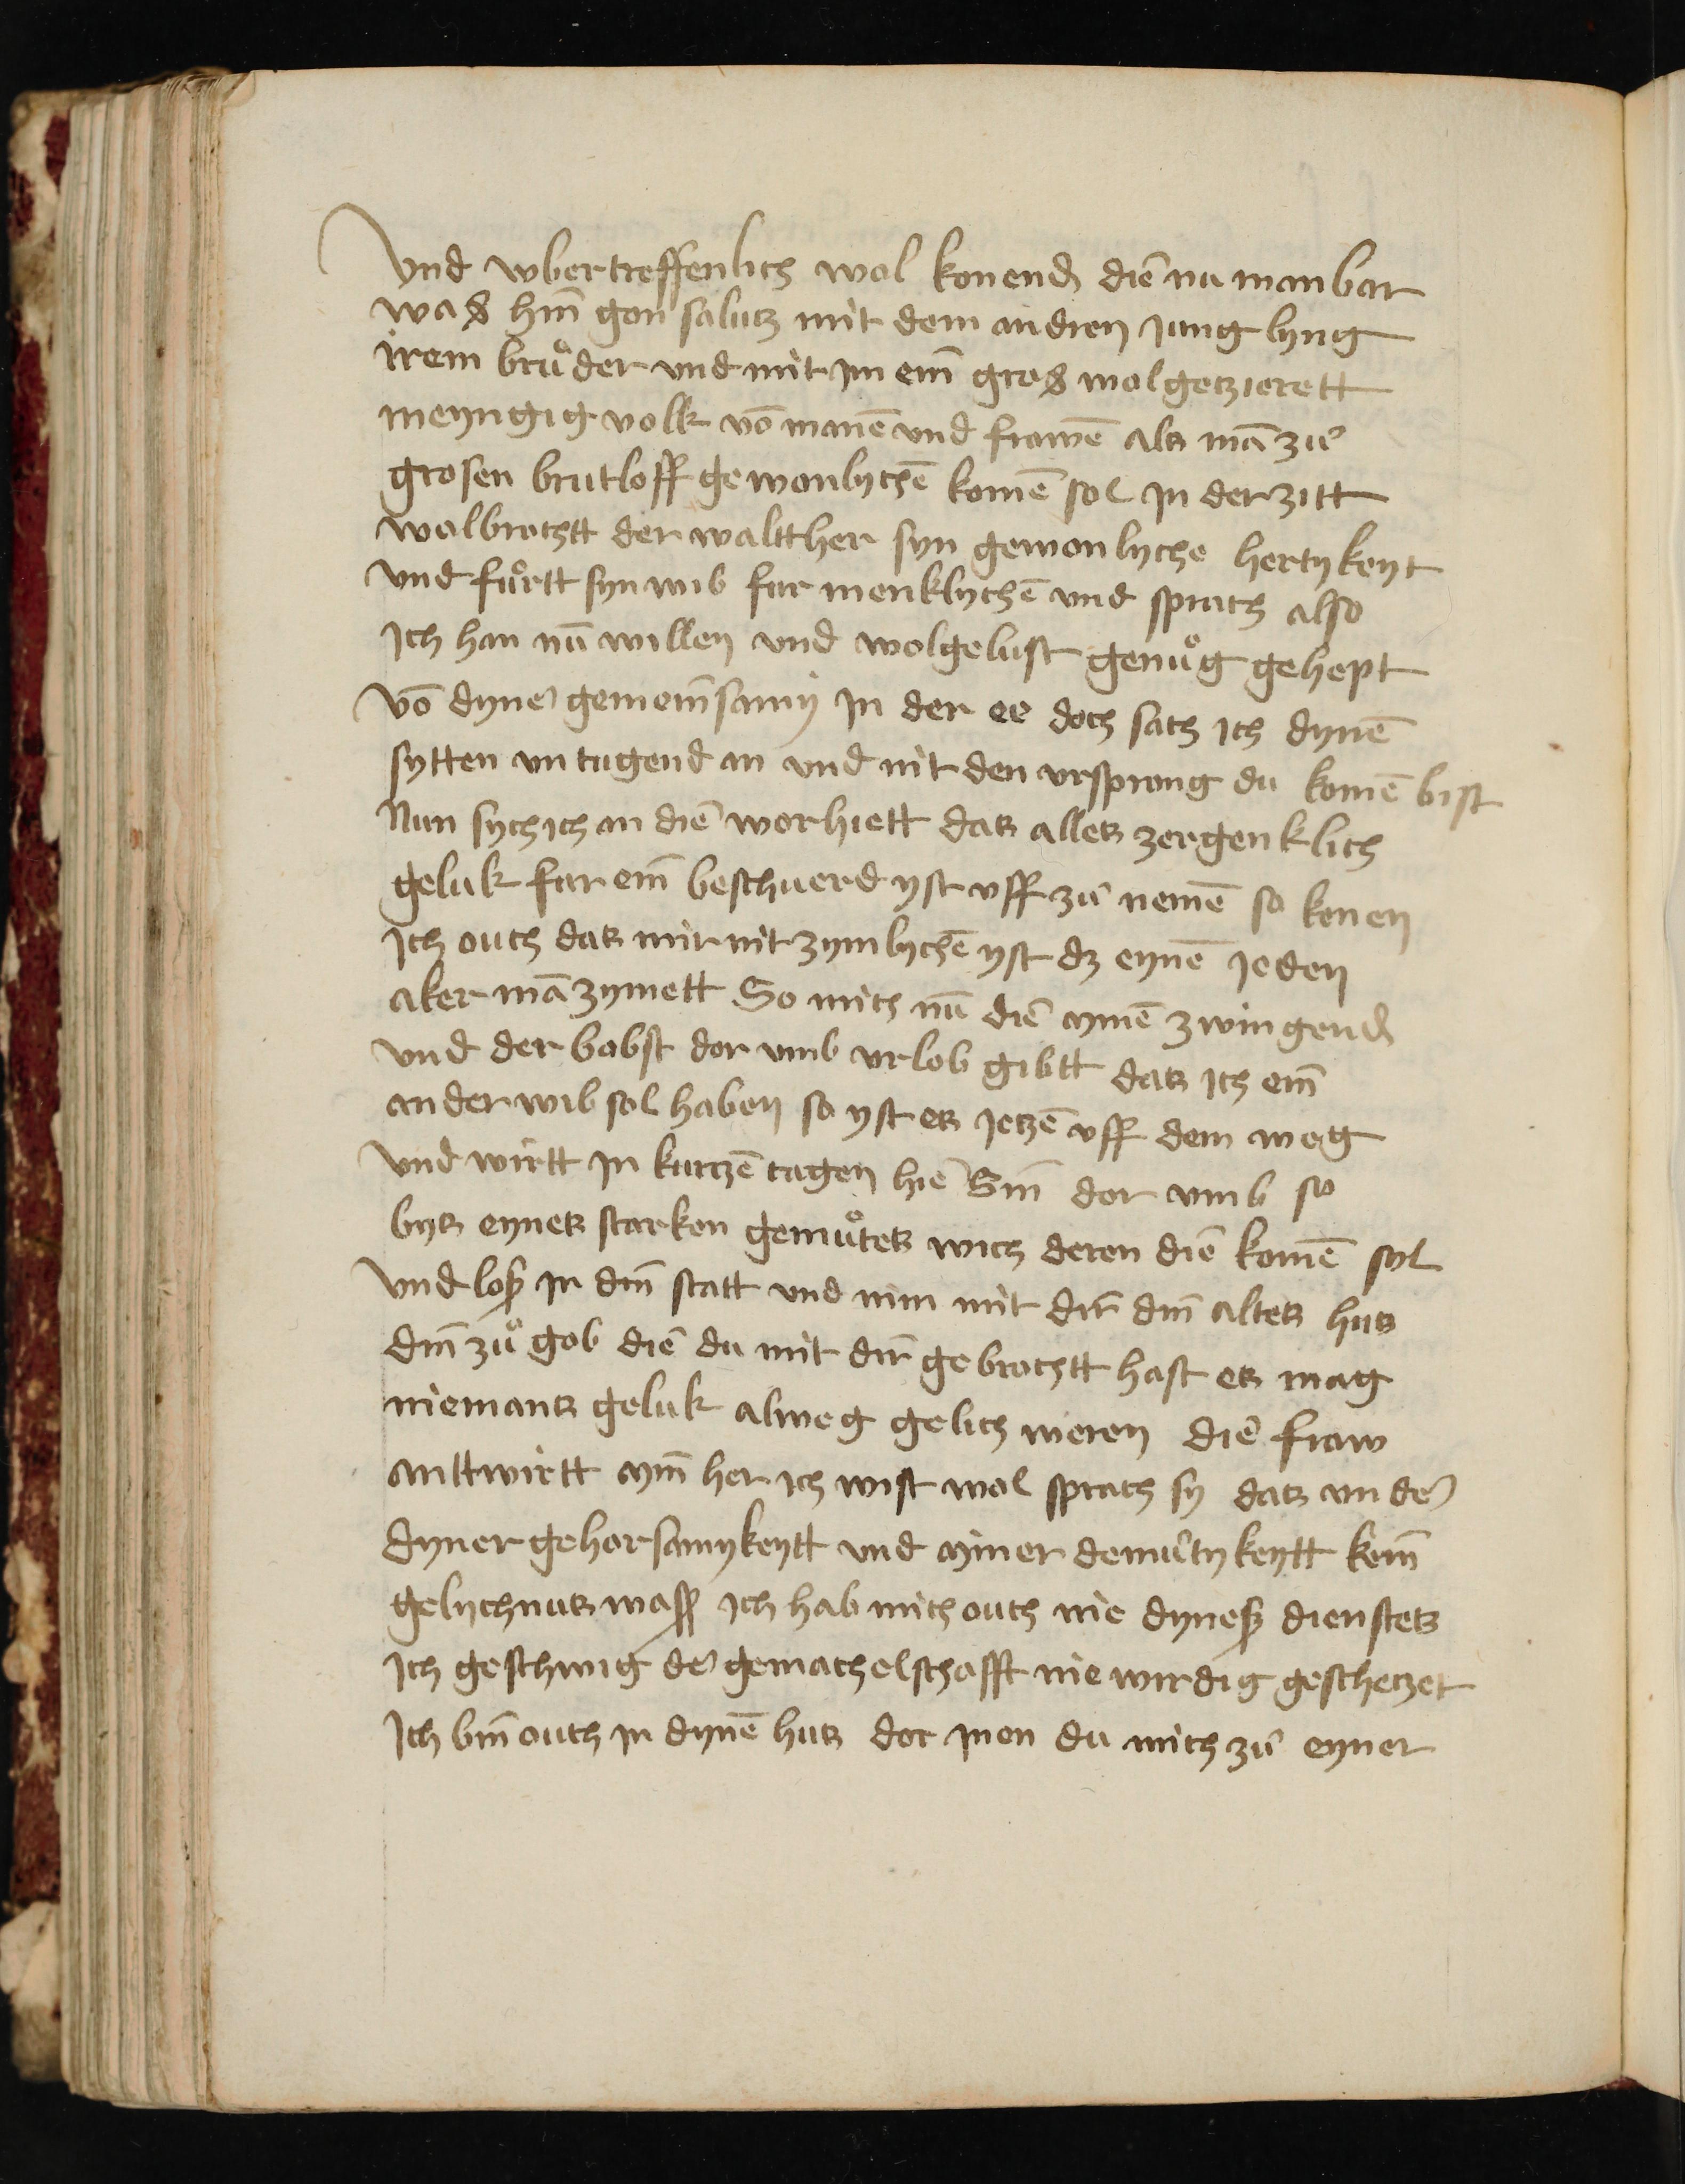 Vnd wbertreffenlich wol konend die͂ nu manbar
was hin͂ gon salutz mit dem andren Jung lyng
irem bruͦder vnd mit jm ein͂ gros wol getzierett
meyngig volk võ manẽ vnd frawẽ als mã zuͦ
grosen brutloff gewonlychẽ komẽ sol jn der zitt
wolbrochtt der waltther syn gewonlyche hertykeyt
vnd fuͦrtt syn wib fur menklychẽ vnd sprach also
Ich han nũ willen vnd wolgelust genuͦg gehept
võ dyner gemein͂samy jn der ee doch sach ich dynẽ
sytten vn tugend an vnd nit den vrsprong du komẽ bist
Nun sych ich an die͂ worhiett das alles zergenklich
geluk fur ein͂ beschwerd yst vff zuͦ nemẽ so kenen
Ich ouch das mir nit zymlychẽ yst dz eynẽ jeden
aker mã zymett So mich nũ die͂ mynẽ zwingend
vnd der babst dor vmb vrlob gibtt das ich ein͂
ander wib sol haben so yst es jetzẽ vff dem weg
vnd wirtt jn kurtzẽ tagen hie͂ Sin͂ dor vmb so
bys eynes starken gemuͦtes wich deren die͂ komẽ sol
vnd los jr din͂ statt vnd nim mit dir͂ din͂ altes hus
din͂ zuͦ gob die͂ du mit dir͂ gebrochtt hast es mag
niemans geluk alweg gelich weren die͂ fraw
anttwirtt myn͂ her ich wist wol sprach sy das vn der
dyner gehorsamykeytt vnd myner demuͦtykeytt kein͂
gelychnus wass ich hab mich ouch nie dynes dienstes
Ich geschwig der gemachelschafft nie wirdig geschetzet
Ich bin͂ ouch jn dynẽ hus dor jnen du mich zuͦ eyner